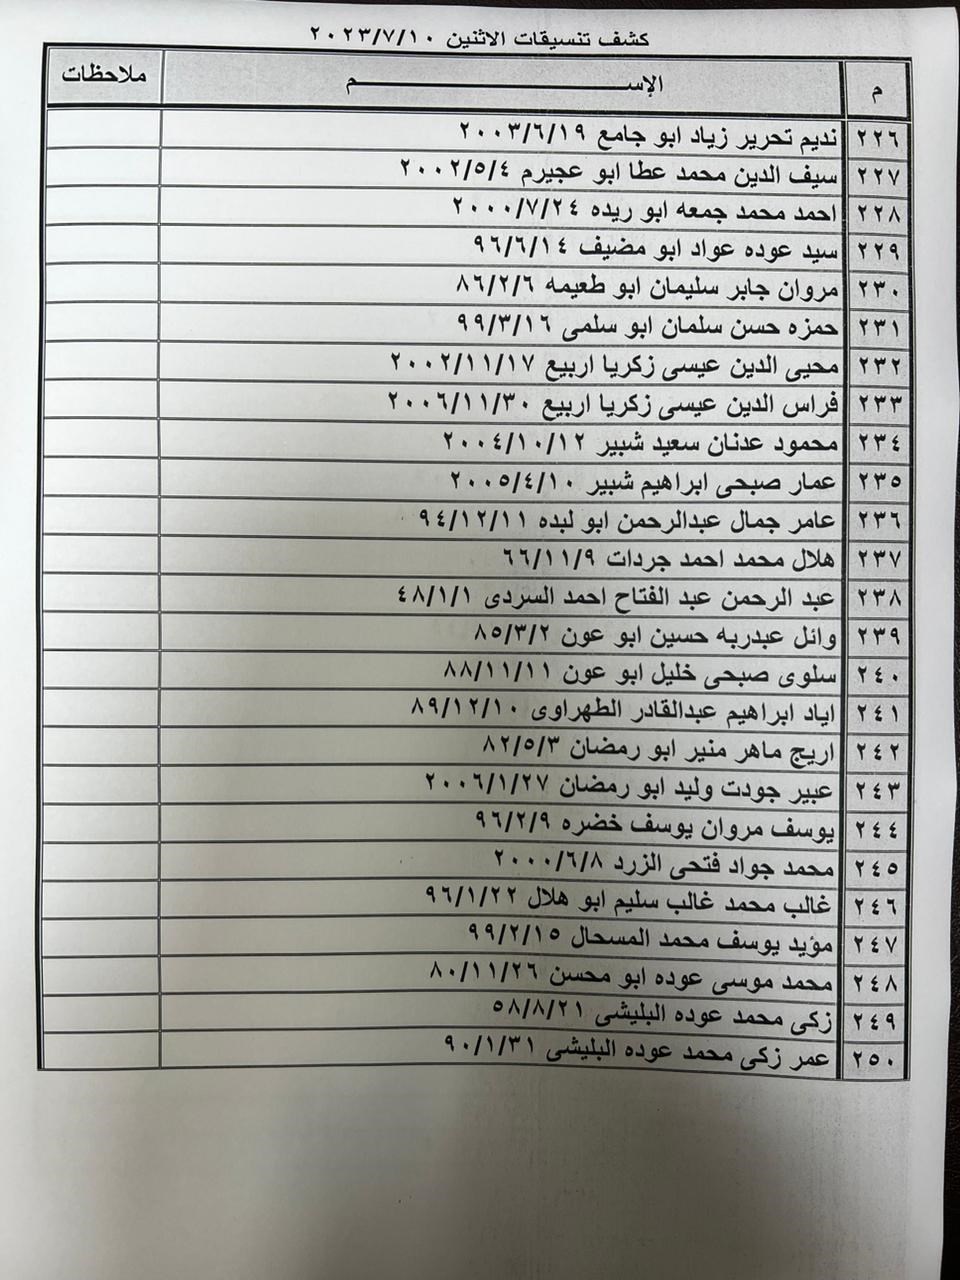 كشف تنسيقات الاثنين ٢٠٢٣/٧/١٠
م الإســـــــــم ملاحظات
٢٢٦ نديم تحرير زياد ابو جامع ٢٠٠٣/٦/١٩
٢٢٧ سيف الدين محمد عطا ابو عجيرم ٢٠٠٢/٥/٤
٢٢٨ احمد محمد جمعه ابو ريده ٢٠٠٠/٧/٢٤
٢٢٩ سيد عوده عواد ابو مضيف ٩٦/٦/١٤
٢٣٠ مروان جابر سليمان ابو طعيمه ٨٦/٢/٦
٢٣١ حمزه حسن سلمان ابو سلمى ٩٩/٣/١٦
٢٣٢ محيى الدين عيسى زكريا اربيع ٢٠٠٢/١١/١٧
٢٣٣ فراس الدين عيسى زكريا اربيع ٢٠٠٦/١١/٣٠
٢٣٤ محمود عدنان سعيد شبير ٢٠٠٤/١٠/١٢
٢٣٥ عمار صبحى ابراهيم شبير ٢٠٠٥/٤/١٠
٢٣٦ عامر جمال عبدالرحمن ابو لبده ٩٤/١٢/١١
٢٣٧ هلال محمد احمد جردات ٦٦/١١/٩
٢٣٨ عبد الرحمن عبد الفتاح احمد السردى ٤٨/١/١
٢٣٩ وائل عبدربه حسين ابو عون ٨٥/٣/٢
٢٤٠ سلوى صبحى خليل ابو عون ٨٨/١١/١١
٢٤١ اياد ابراهيم عبدالقادر الطهراوى ٨٩/١٢/١٠
٢٤٢ اريج ماهر منير ابو رمضان ٨٢/٥/٣
٢٤٣ عبير جودت وليد ابو رمضان ٢٠٠٦/١/٢٧
٢٤٤ يوسف مروان يوسف خضره ٩٦/٢/٩
٢٤٥ محمد جواد فتحى الزرد ٢٠٠٠/٦/٨
٢٤٦ غالب محمد غالب سليم ابو هلال ٩٦/١/٢٢
٢٤٧ مؤيد يوسف محمد المسحال ٩٩/٢/١٥
٢٤٨ محمد موسى عوده ابو محسن ٨٠/١١/٢٦
٢٤٩ زكى محمد عوده البليشى ٥٨/٨/٢١
٢٥٠ عمر زكى محمد عوده البليشى ٩٠/١/٣١